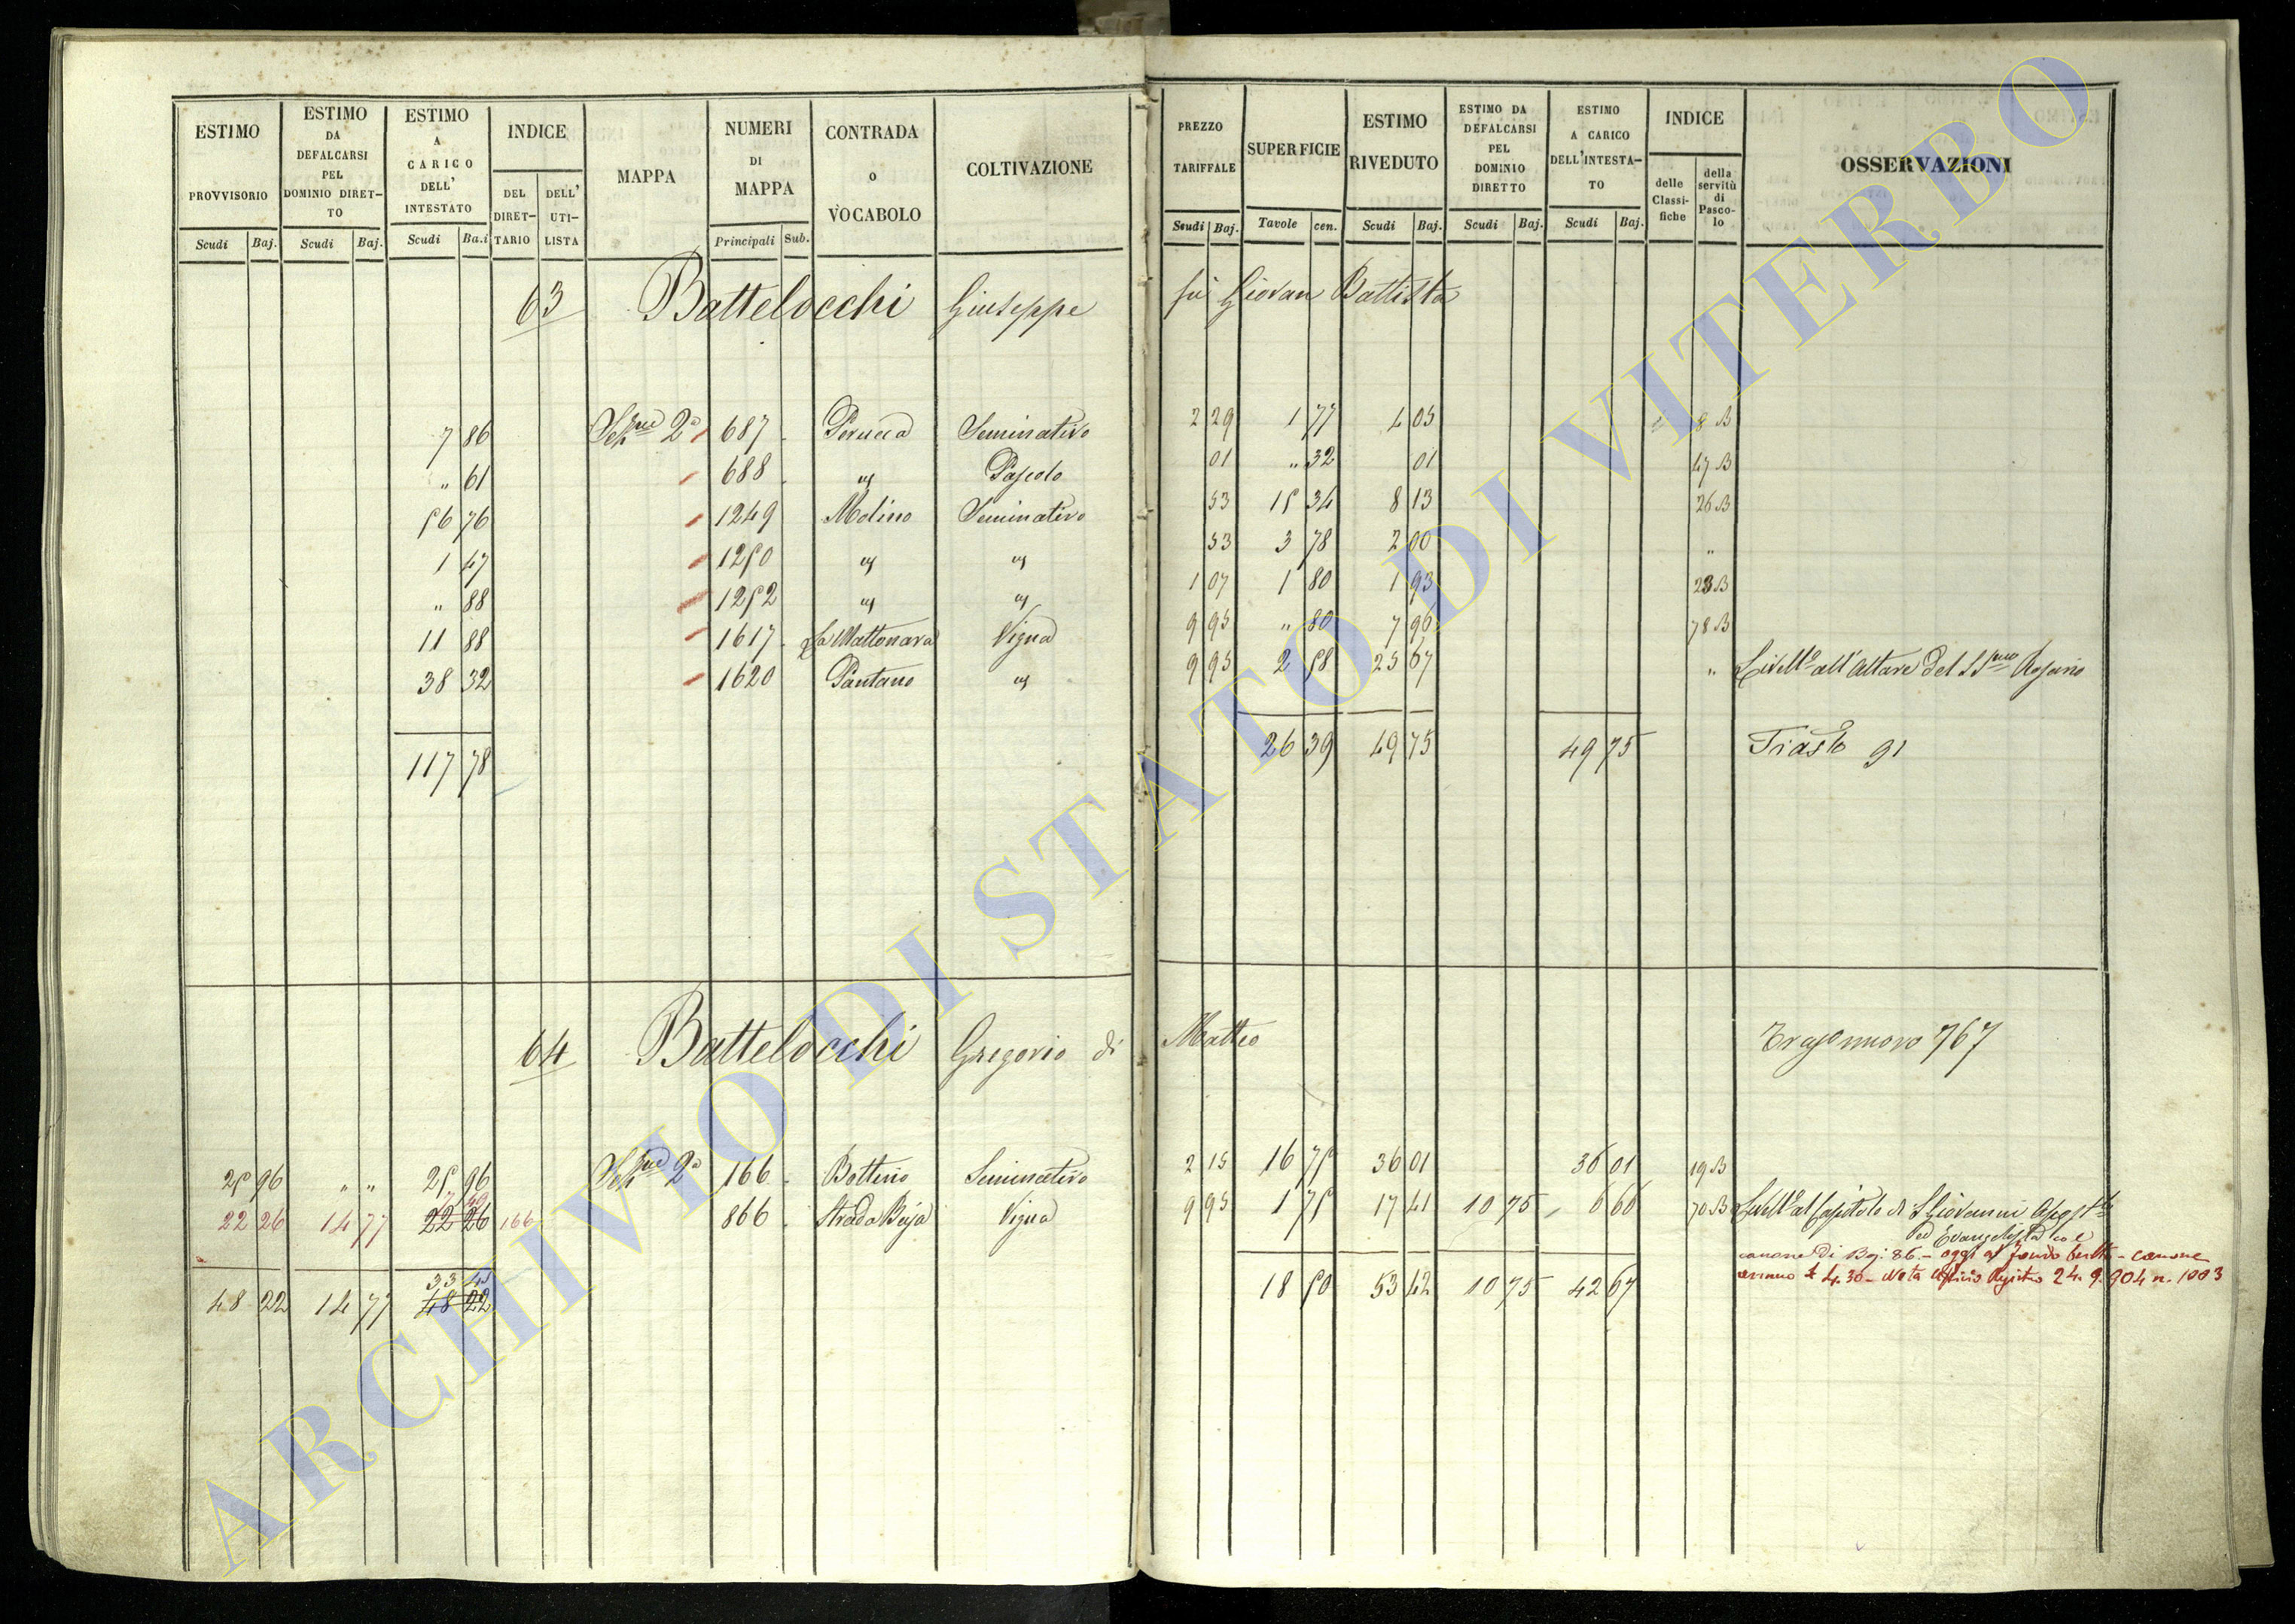 ESTIMO PROVVISORIO Scudi Baj.
ESTIMO DA DEFALCARSI PEL DOMINIO DIRETTO Scudi Baj.
ESTIMO A CARICO DELL' INTESTATO Scudi Ba.i
INDICE DEL DIRETTARIO DELL' UTILISTA
MAPPA
NUMERI DI MAPPA Principali Sub.
CONTRADA o VOCABOLO
COLTIVAZIONE
PREZZO TARIFFALE Scudi Baj.
SUPERFICIE Tavole cen.
ESTIMO RIVEDUTO Scudi Baj.
ESTIMO DA DEFALCARSI PEL DOMINIO DIRETTO Scudi Baj.
ESTIMO A CARICO DELL'INTESTATO Scudi Baj.
INDICE delle Classifiche della servitù di Pascolo
OSSERVAZIONI
63 Battelocchi Giuseppe fu Giovan Battista
7 86 Sezne 2a 687 Perucca Seminativo 2 29 1 77 4 05 8 B
" 61 688 " Pascolo 01 " 32 01 47 B
56 76 1249 Molino Seminativo 53 15 34 8 13 26 B
1 47 1250 " " 53 3 78 2 00 "
" 88 1252 " " 1 07 1 80 1 93 28 B
11 88 1617 La Mattonara Vigna 9 95 " 80 7 96 78 B
38 32 1620 Pantano " 9 95 2 58 25 67 " Livello all'Altare del SSmo Rosario
117 78 26 39 49 75 49 75 91
64 Battelocchi Gregorio di Matteo 767
25 96 " " 25 96 Sezne 2a 166 Bottino Seminativo 2 15 16 75 36 01 36 01 19 B
7 49
22 26 14 77 22 26 166 866 Strada Beja Vigna 9 95 1 75 17 41 10 75 6 66 70 B Livello al Capitolo di S Giovanni Apost
ed Evangelista
canone di Baj: 86 - oggi al fondo Culto - canone
33 45
annuo £ 4.30 - Nota Ufficio Registro 24.9.904 n. 1003
48 22 14 77 48 22 18 50 53 42 10 75 42 67
ARCHIVIO DI STATO DI VITERBO